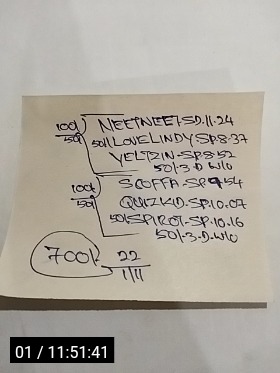 100/ NEETNEET.SD.11.24
50/ 50/1 LOVELINDY.SP.8.37
YELTZIN-SP.8.52
50/-3-D-W/O
100/ SCOFFA-SP.9.54
50/ QUIZKID-SP.10.07
50/ SPIROT-SP.10.16
50/-3-D-W/O
700/- 22
1/11
01 / 11:51:41